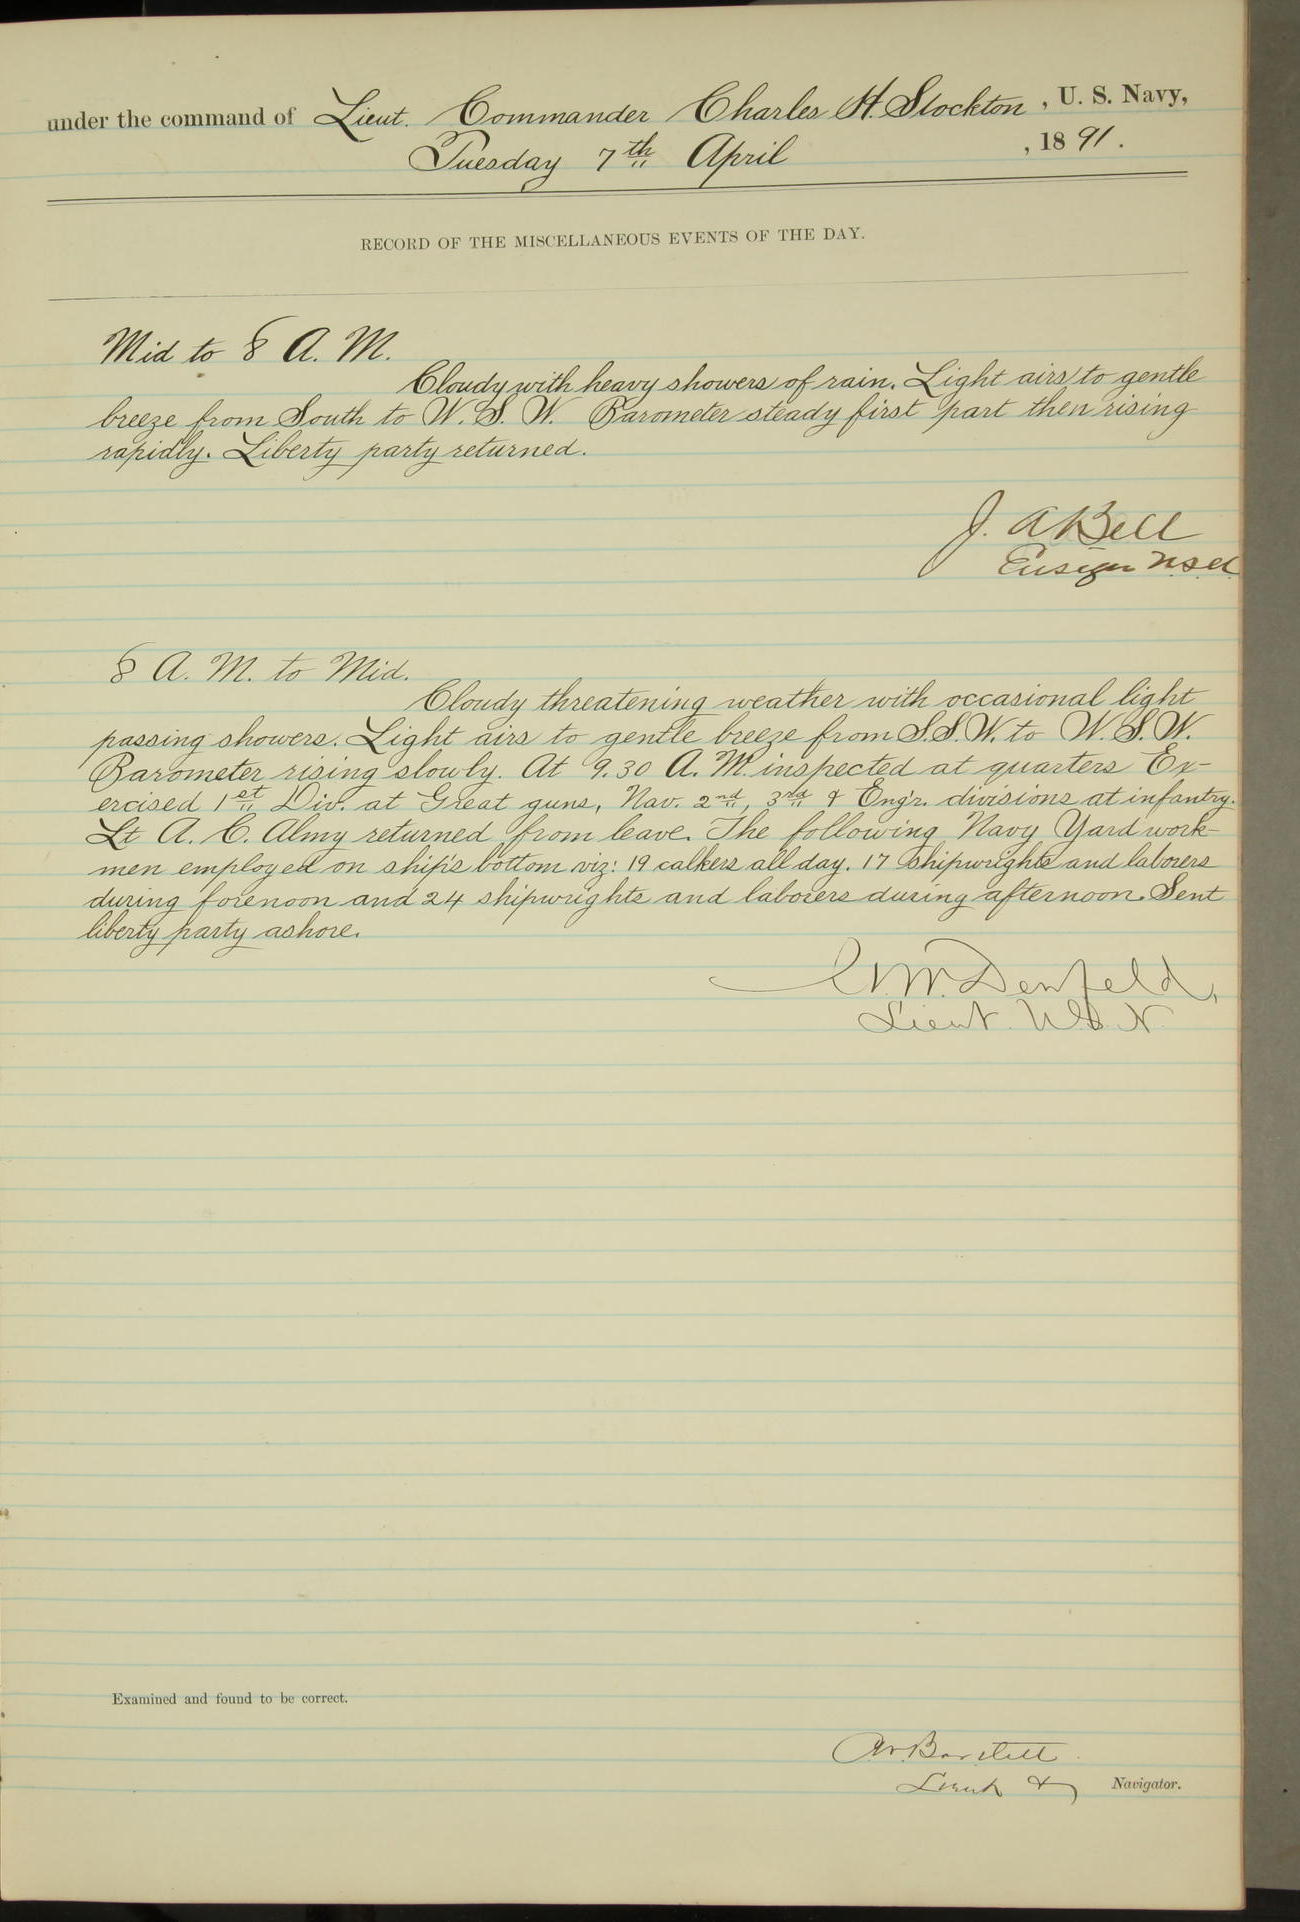 under the command of Lieut. Commander Charles H. Stockton, U. S. Navy,
Tuesday 7th April, 1891.
RECORD OF THE MISCELLANEOUS EVENTS OF THE DAY.
Mid to 8 A. M.
Cloudy with heavy showers of rain. Light airs to gentle
breeze from South to W. S. W. Barometer steady first part then rising
rapidly. Liberty party returned.
J. A Bell
Ensign U.S.N.
8 A. M. to Mid.
Cloudy threatening weather with occasional light
passing showers. Light airs to gentle breeze from S.S.W. to W.S.W.
Barometer rising slowly. At 9.30 A. M. inspected at quarters Ex-
ercised 1st Div. at Great guns, Nav. 2nd, 3rd & Eng'r. divisions at infantry.
Lt A. C. Almy returned from leave. The following Navy Yard work-
men employed on ship's bottom viz: 19 calkers all day. 17 shipwrights and laborers
during forenoon and 24 shipwrights and laborers during afternoon. Sent
liberty party ashore.
Denfeld,
Lieut. U.S.N.
Examined and found to be correct.
Bartlett
Lieut & Navigator.